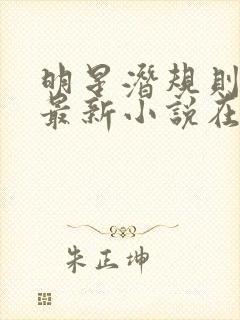 明星潛規則
最新小說在
朱正坤